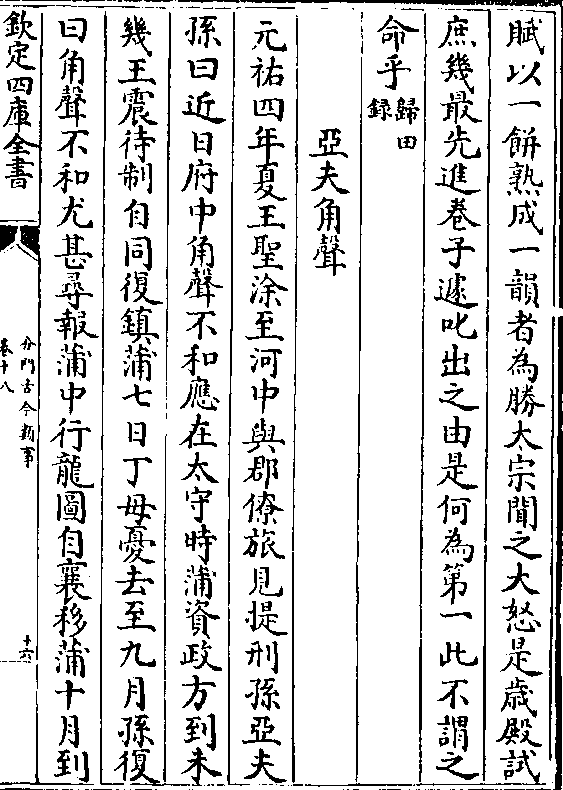 賦以一餅熟成一韻者為勝太宗聞之大怒是歳殿試
庶幾最先進卷子遽叱出之由是何為第一此不謂之
命乎歸田録
亞夫角聲
元祐四年夏王聖涂至河中與郡僚旅見提刑孫亞夫
孫曰近日府中角聲不和應在太守時蒲資政方到未
幾王震待制自同復鎮蒲七日丁毋憂去至九月孫復
曰角聲不和尤甚尋報蒲中行龍圖自襄移蒲十月到
欽定四庫全書
分門古今類事
卷十八
十六